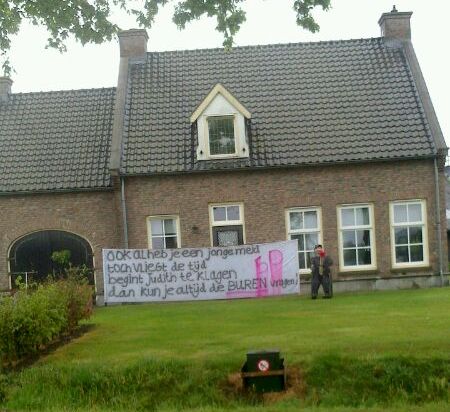 Ook al heb je een jonge meid
toch vliegt de tijd
begint Judith te klagen
dan kun je altijd de BUREN vragen!